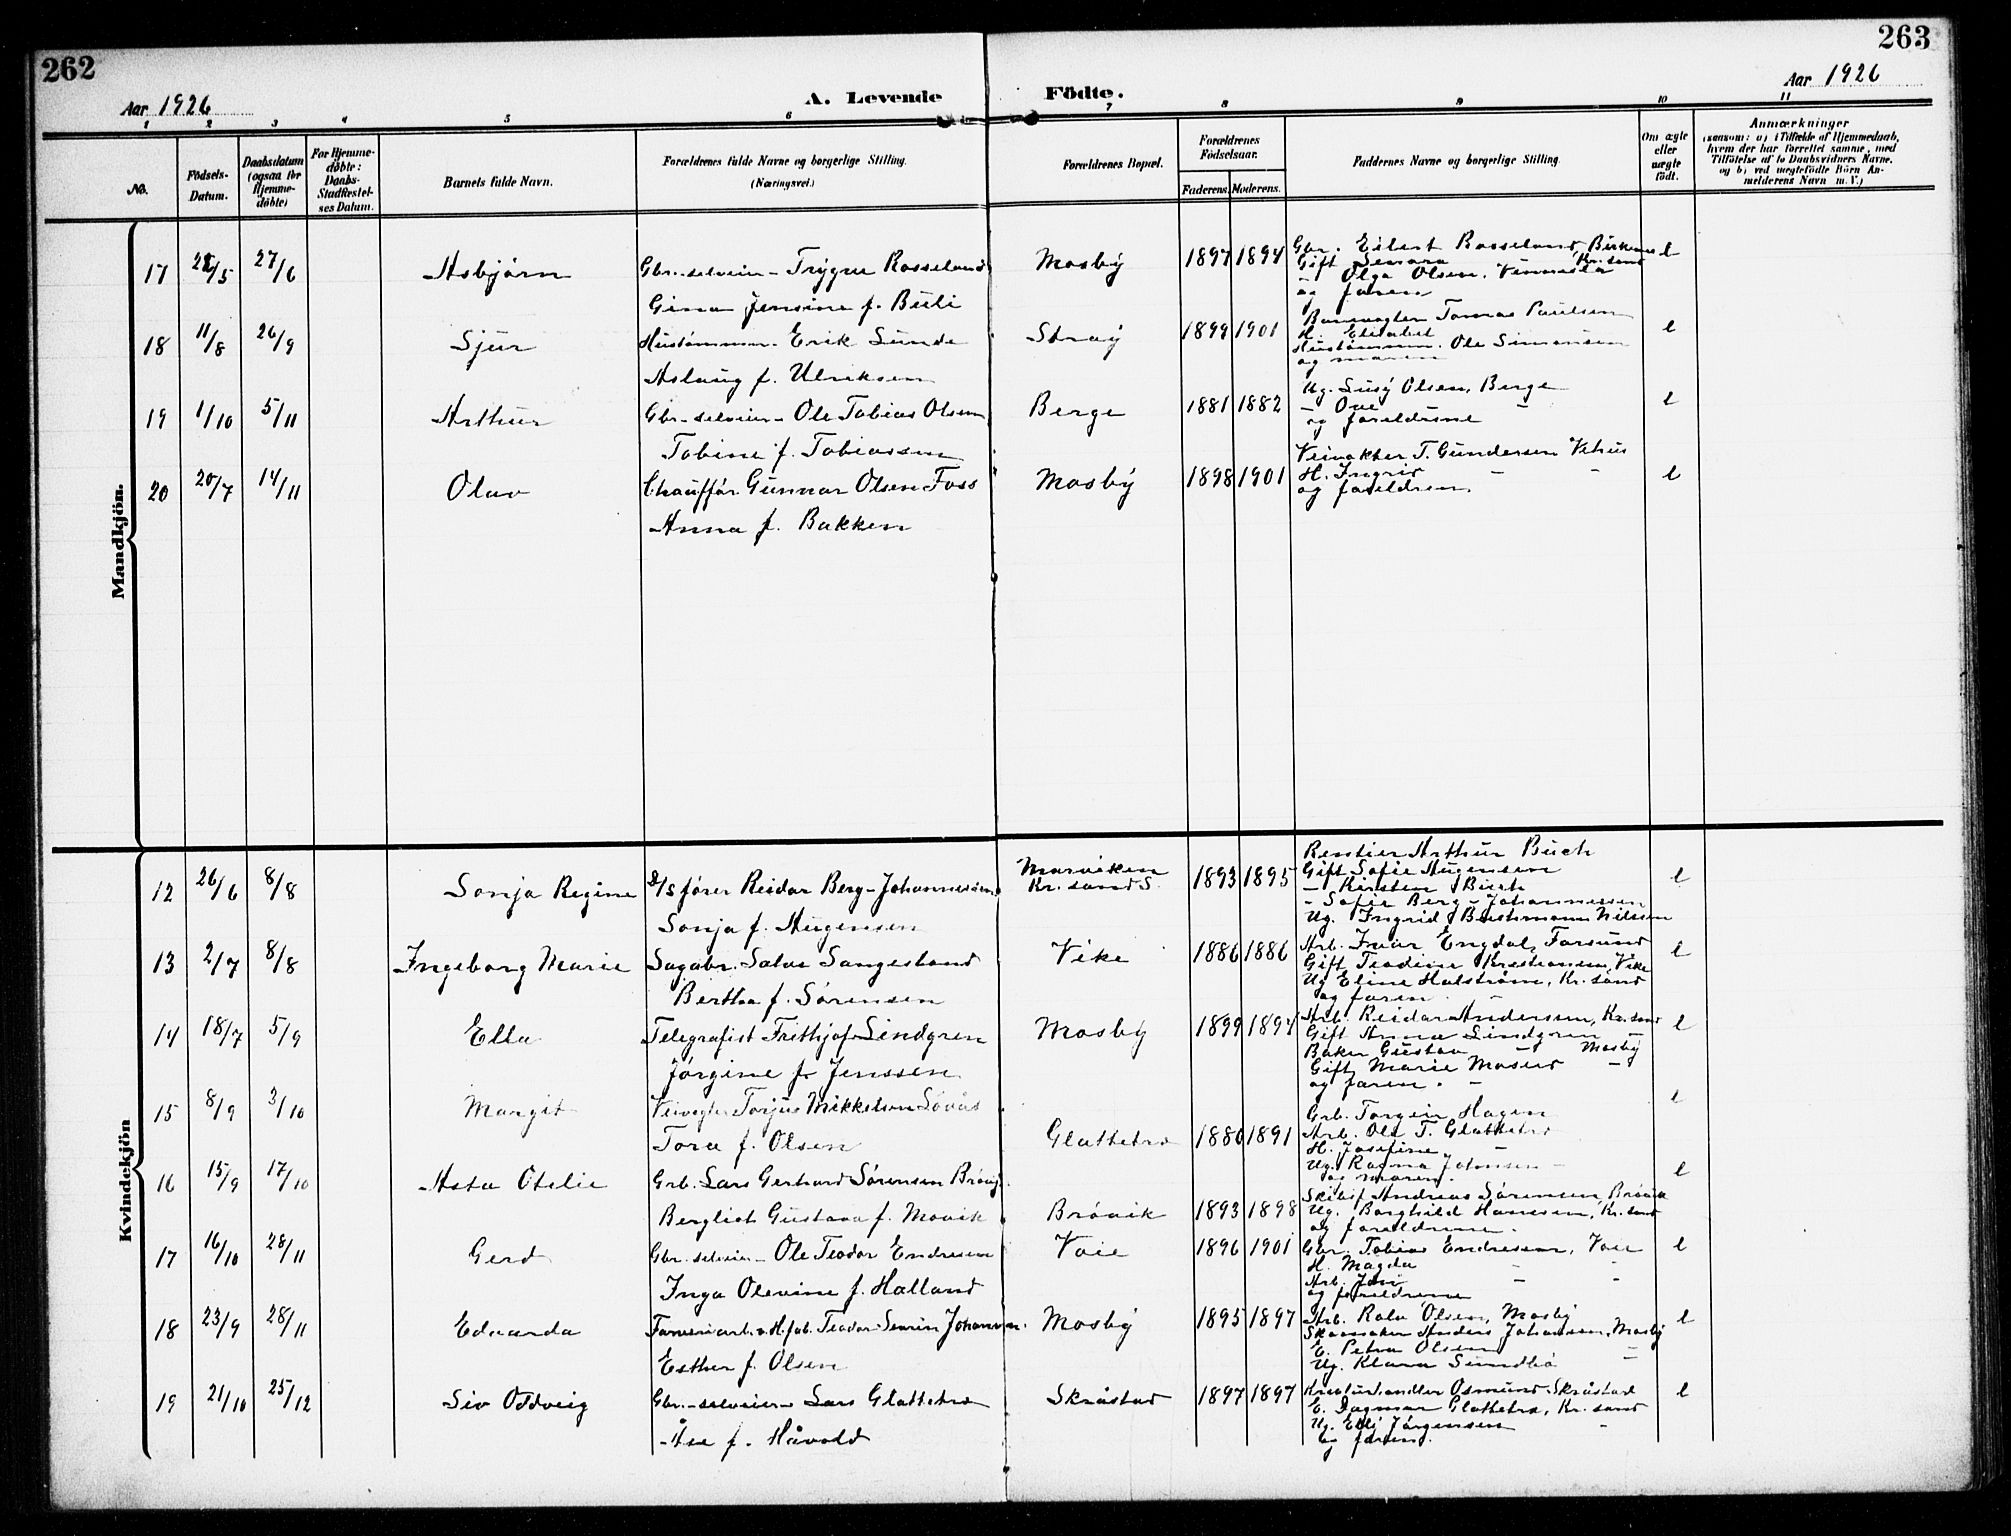 262
263
Aar 1926
A. Levende Födte.
Aar 1926
1 2 3 4 5 6 7 8 9 10 11
No.
Födsels-Datum.
Daabsdatum (ogsaa for Hjemme-döbte)
For Hjemme-döbte: Daabs-Stadfæstel-ses Datum.
Barnets fulde Navn.
Forældrenes fulde Navne og borgerlige Stilling.
(Næringsvei.)
Forældrenes Bopæl.
Forældrenes Födselsaar.
Faderens. Moderens.
Faddernes Navne og borgerlige Stilling.
Om ægte eller uægte födt.
Anmærkninger
(saasom: a) i Tilfælde af Hjemmedaab,
hvem der har forrettet samme, med
Tilföielse af to Daabsvidners Navne.
og b) ved uægtefödte Börn An-
melderens Navn m. V.)
Mandkjön.
17 /5 27/6 Asbjørn Gbr.-selveier- Trygve Rosseland Mosby 1897 1894 Gbr. Eilert Rosseland, Birkenes e
Gift Kr.sand
Gina Jensine f. Buli
- Olga Olsen, Vennesla
og faren
18 11/8 26/9 Sjur Hustømmerm. Erik Sunde Stray 1899 1901 Banevogter Tomas Paulsen e
H. Elisabet
Aslaug f. Ulriksen
Hustømmerm. Ole Simonsen
og moren
19 1/10 5/11 Arthur Gbr.-selveier- Ole Tobias Olsen Berge 1881 1882 Ug. Susy Olsen, Berge e
- Ove -
Tobine f. Tobiassen
og foreldrene
20 20/7 14/11 Olav Chauffør Gunnar Olsen Foss Mosby 1898 1901 Veivokter T. Gundersen Vehus e
H. Ingrid - -
Anna f. Bakken
og foreldren.
Kvindekjön
12 26/6 8/8 Sonja Regine D/S fører Reidar Berg-Johannessen Marviken Kr.sand S. 1893 1895 Rentier Arthur Buch e
Gift Sofie Augensen
- Kirsten Buch
- Sofie Berg-Johannessen
Sonja f. Augensen
Ug. Ingrid Bushmann Nilsen
13 2/7 8/8 Ingeborg Marie Sagabr. Salve Sangesland Vike 1886 1886 Arb. Ivar Engdal, Farsund e
Gift Teodine Kristiansen, Vike
Bertha f. Sørensen
Ug Eline Halstrøm, Kr.sand
og faren -
14 18/7 5/9 Ella Telegrafist Frithjof Lindgren Mosby 1899 1897 Arb. Reidar Andersen, Kr.sand e
Gift Anna Lindgren -
Baker Gustav - Mosby
Jørgine f. Jenssen
Gift Marie Moseid -
og faren. -
15 8/9 3/10 Margit Veivogter Torjus Mikkelson Løvås Glattetre 1880 1891 Grb. Torgeir Hagen e
Arb. Ole T. Glattetre
Tora f. Olsen
H. Josefine -
Ug. Ragna Johnsen -
og moren.
16 15/9 17/10 Asta Otelie Grb. Lars Gerhard Sørensen Brøvig. Brøvik 1893 1898 Andreas Sørensen, Brøvik e
Ug. Borghild Hansen, Kr.sand
Bergliot Gustava f. Movik
og foreldrene.
17 16/10 28/11 Gerd Gbr.-selveier- Ole Teodor Endresen Voie 1896 1901 Gbr. Tobias Endresen, Voie e
H. Magda - -
Arb. - -
Inga Olevine f. Halland
og foreldrene
18 23/9 28/11 Edvarda Teodor Severin Johansen. Mosby 1895 1897 Arb. Olsen, Mosby e
Skomaker Anders Johansen, Mosby
E. Petra Olsen -
Esther f. Olsen
Ug. Klara Sundbø -
19 21/10 25/12 Siv Oddveig Gbr.-selveier- Lars Glattetre Skråstad 1897 1897 Kreaturhandler Osmund Skråstad e
E. Dagmar Glattetre, Kr.sand
Åse f. Håvold
Ug. Elly Jørgensen -
og faren.